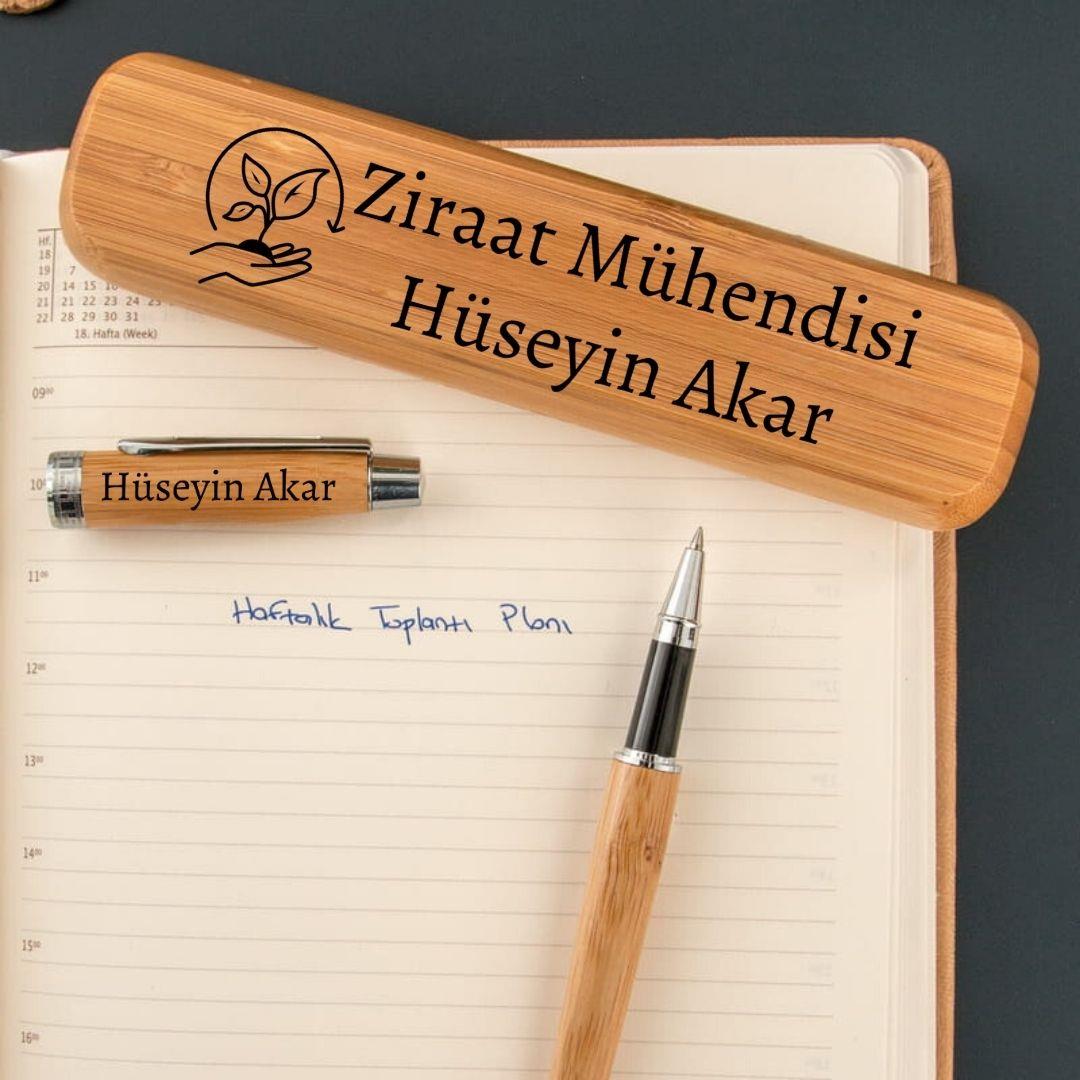 Ziraat Mühendisi
Hüseyin Akar
Hf.
18
19 7
20 14 15 16
21 21 22 23 24 25
22 28 29 30 31
18. Hafta (Week)
09⁰⁰
Hüseyin Akar
11⁰⁰
Haftalık Toplantı Planı
12⁰⁰
13⁰⁰
14⁰⁰
15⁰⁰
16⁰⁰